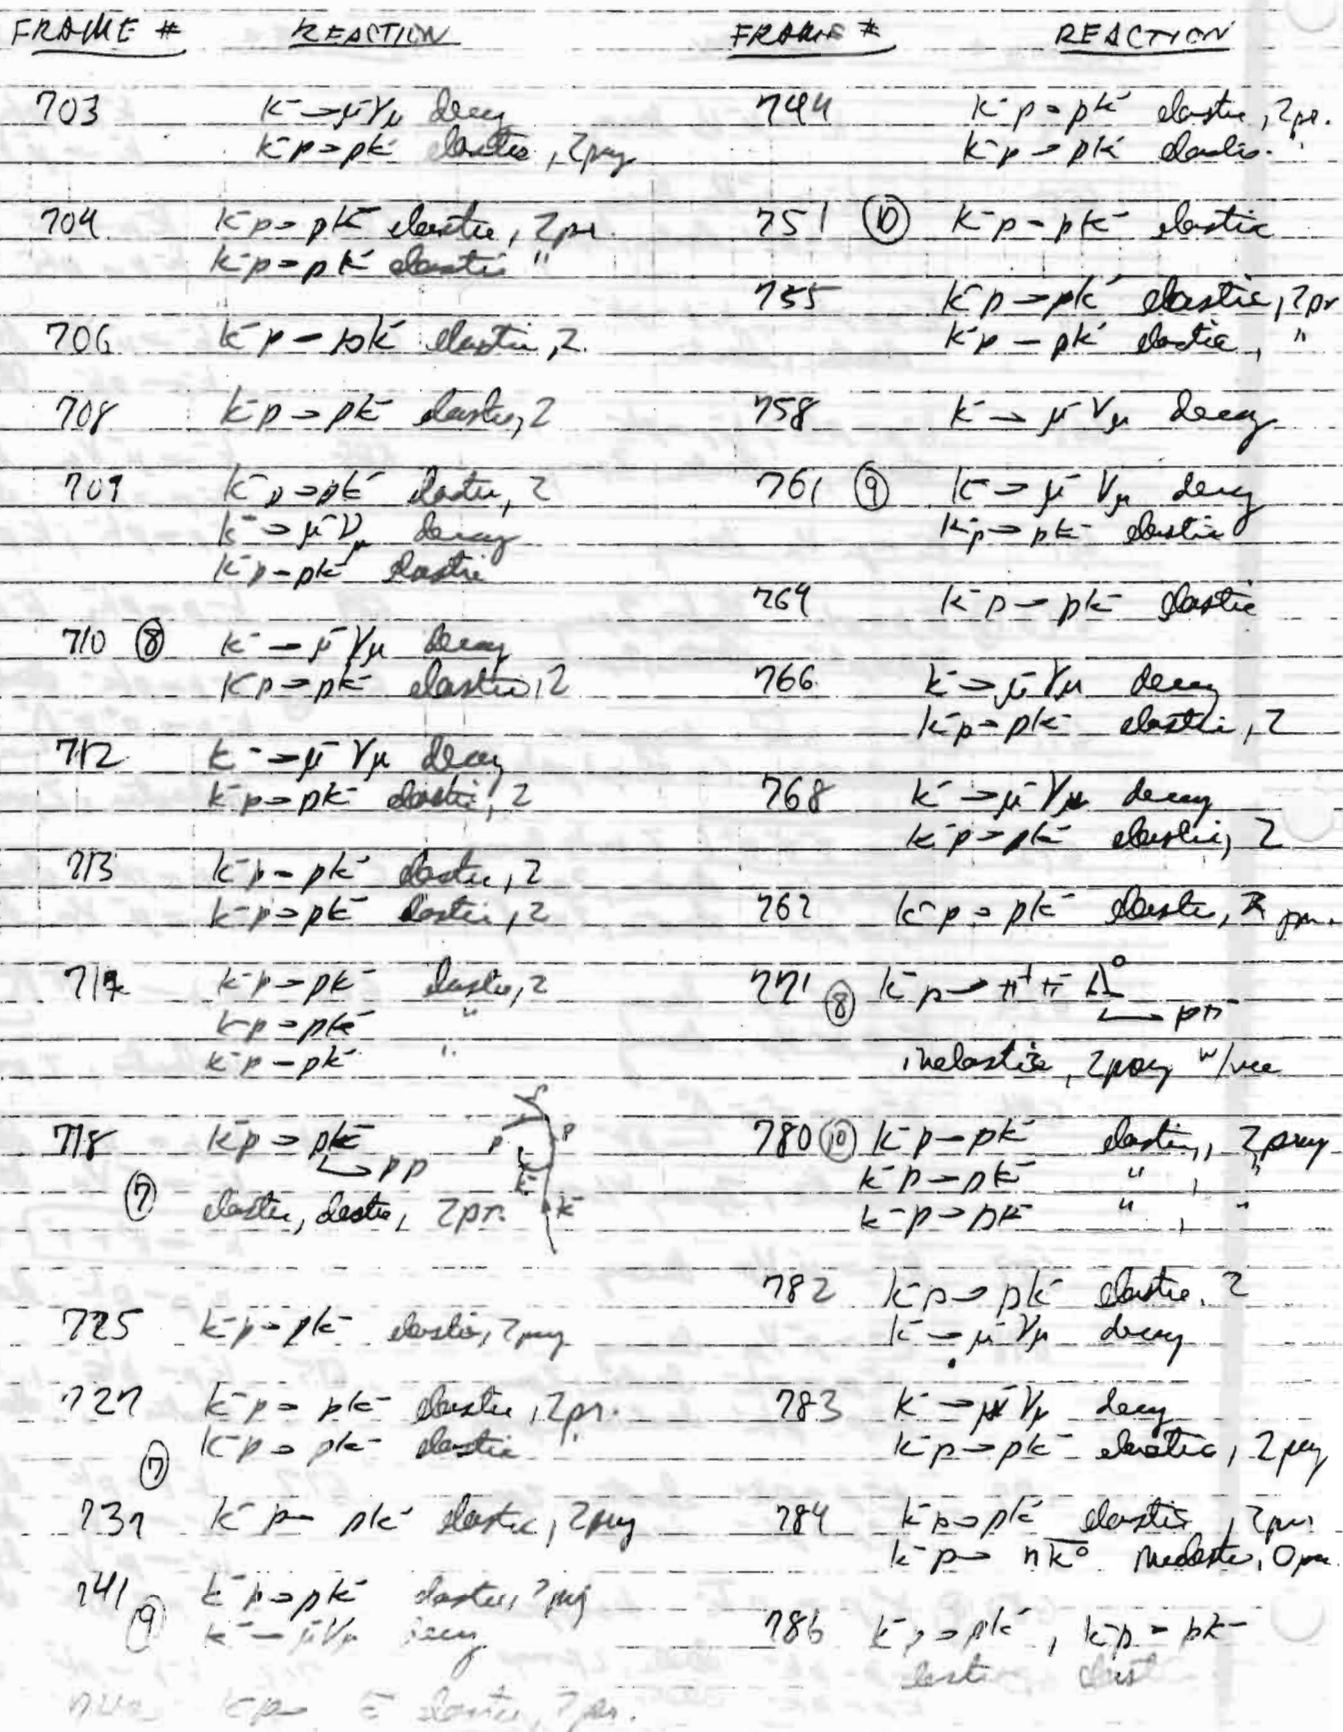 FRAME # REACTION
703 K⁻ → μ⁻ νμ decay
K⁻p → pK⁻ elastic, 2 prong
704 K⁻p → pK⁻ elastic, 2 pr.
K⁻p → pK⁻ elastic "
706 K⁻p – pK⁻ elastic, 2
708 K⁻p → pK⁻ elastic, 2
709 K⁻p → pK⁻ elastic, 2
K⁻ → μ⁻ νμ decay
K⁻p – pK⁻ elastic
710 ⑧ K⁻ → μ⁻ νμ decay
K⁻p → pK⁻ elastic, 2
712 K⁻ → μ⁻ νμ decay
K⁻p → pK⁻ elastic, 2
713 K⁻p – pK⁻ elastic, 2
K⁻p → pK⁻ elastic, 2
714 K⁻p → pK⁻ elastic, 2
K⁻p → pK⁻ "
K⁻p – pK⁻ "
718 K⁻p → pK⁻
↳ pp
p p
K⁻
⑦ elastic, elastic, 2 pr. K⁻
725 K⁻p → pK⁻ elastic, 2 prong
727 K⁻p → pK⁻ elastic, 2 pr.
K⁻p → pK⁻ elastic "
⑦
737 K⁻p – pK⁻ elastic, 2 prong
741 K⁻p → pK⁻ elastic, 2 prong
⑨ K⁻ – μ⁻ νμ decay
elastic, 2 pr.
FRAME # REACTION
744 K⁻p → pK⁻ elastic, 2 pr.
K⁻p → pK⁻ elastic "
751 ⑩ K⁻p – pK⁻ elastic
755 K⁻p → pK⁻ elastic, 2 pr
K⁻p – pK⁻ elastic, "
758 K⁻ → μ⁻ νμ decay
761 ⑨ K⁻ → μ⁻ νμ decay
K⁻p → pK⁻ elastic
764 K⁻p – pK⁻ elastic
766 K⁻ → μ⁻ νμ decay
K⁻p → pK⁻ elastic, 2
768 K⁻ → μ⁻ νμ decay
K⁻p → pK⁻ elastic, 2
762 K⁻p → pK⁻ elastic, 2 pr.
771 ⑧ K⁻p → π⁺ π⁻ Λ⁰
↳ pπ⁻
inelastic, 2 prong w/vee
780 ⑩ K⁻p – pK⁻ elastic, 2 prong
K⁻p → pK⁻ " , "
K⁻p → pK⁻ " , "
782 K⁻p → pK⁻ elastic, 2
K⁻ → μ⁻ νμ decay
783 K⁻ → μ⁻ νμ decay
K⁻p → pK⁻ elastic, 2 prong
784 K⁻p → pK⁻ elastic, 2 pr.
K⁻p → nK̄⁰ inelastic, 0 pr.
786 K⁻p → pK⁻, K⁻p – pK⁻
elastic elast